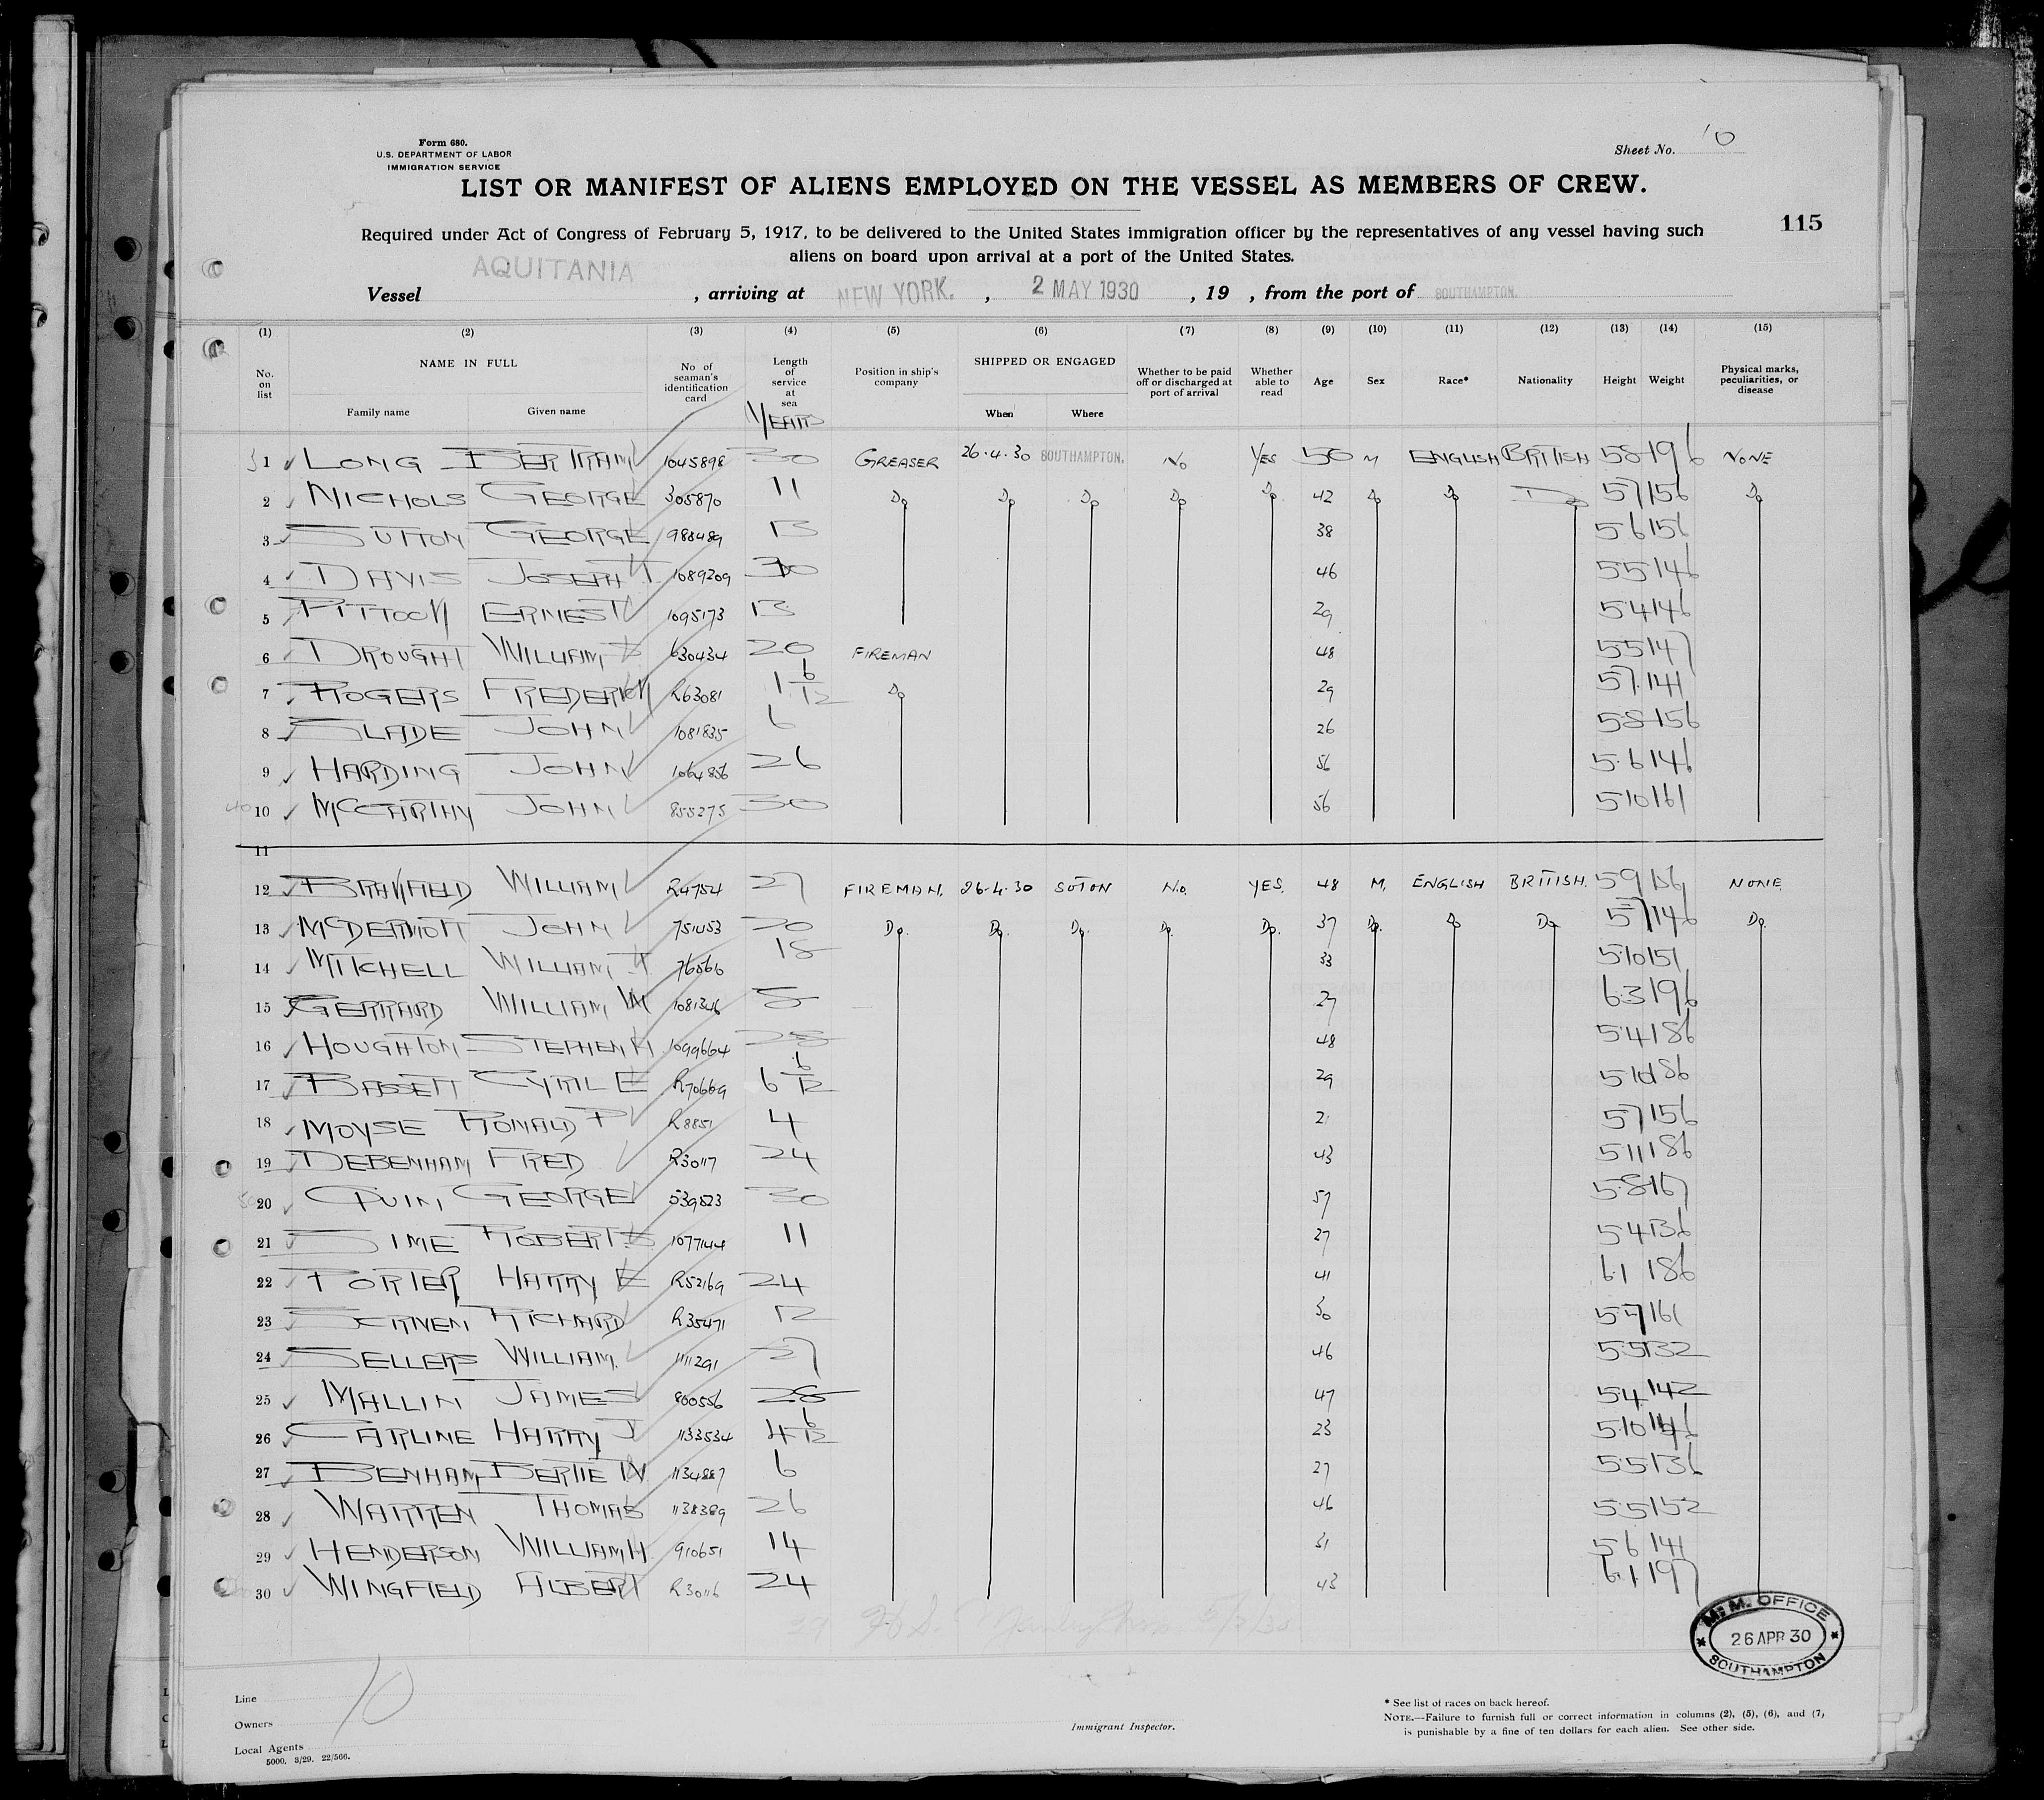 Form 680.
U.S. DEPARTMENT OF LABOR
IMMIGRATION SERVICE
Sheet No. 10
LIST OR MANIFEST OF ALIENS EMPLOYED ON THE VESSEL AS MEMBERS OF CREW.
115
Required under Act of Congress of February 5, 1917, to be delivered to the United States immigration officer by the representatives of any vessel having such
aliens on board upon arrival at a port of the United States.
Vessel AQUITANIA, arriving at NEW YORK., 2 MAY 1930, 19 , from the port of SOUTHAMPTON.
(1) (2) (3) (4) (5) (6) (7) (8) (9) (10) (11) (12) (13) (14) (15)
No. on list NAME IN FULL Family name Given name No of seaman's identification card Length of service at sea YEARS Position in ship's company SHIPPED OR ENGAGED When Where Whether to be paid off or discharged at port of arrival Whether able to read Age Sex Race* Nationality Height Weight Physical marks, peculiarities, or disease
1 LONG BERTRAM 1045898 30 GREASER 26.4.30 SOUTHAMPTON. NO YES 50 M ENGLISH BRITISH 5.8 196 NONE
2 NICHOLS GEORGE 305870 11 Do Do Do Do Do 42 Do Do Do 5.7 156 Do
3 SUTTON GEORGE 13 38 5.6 156
4 DAVIS JOSEPH T 1089209 30 46 5.5 146
5 ERNEST 1095173 13 29 5.4 146
6 DROUGHT WILLIAM 630434 20 FIREMAN 48 5.5 147
7 ROGERS FREDERICK R63081 1 6/12 Do 29 5.7 141
8 SLADE JOHN 1081835 6 26 5.8 156
9 HARDING JOHN 1064856 26 56 5.6 146
10 MCCARTHY JOHN 855275 30 56 5.10 161
11
12 BRAYFIELD WILLIAM R4754 27 FIREMAN. 26.4.30 SOTON No. YES. 48 M. ENGLISH BRITISH. 5.9 156 NONE.
13 MCDERMOTT JOHN 20 Do. Do. Do. Do. Do. 37 Do. Do Do 5.7 146 Do.
14 MITCHELL WILLIAM 18 33 5.10 151
15 GERRARD WILLIAM W 1081346 5 27 6.3 196
16 HOUGHTON STEPHEN H 1099664 28 48 5.4 186
17 BASSETT CYRIL E R70669 6 6/12 29 5.10 186
18 MOYSE RONALD P R8851 4 5.7 156
19 DEBENHAM FRED R30117 24 43 5.11 186
20 QUIN GEORGE 539823 30 57 5.8 167
21 SIME ROBERT 1077144 11 27 5.4 136
22 PORTER HARRY E R52169 24 41 6.1 186
23 RICHARD R35471 12 30 5.7 161
24 SELLERS WILLIAM. 1111291 27 46 5.5 132
25 MALLIN JAMES 800556 28 47 5.4 142
26 CARLINE HARRY J 1133534 4 6/12 23 5.10 146
27 BENHAM BERTIE W 1134887 6 27 5.5 136
28 WARREN THOMAS 1138389 26 46 5.5 152
29 HENDERSON WILLIAM H. 910651 14 31 5.6 141
30 WINGFIELD ALBERT R30116 24 43 6.1 197
M. M. OFFICE
26 APR 30
SOUTHAMPTON
10
Line
Owners
Local Agents
5000. 3/29. 22/566.
Immigrant Inspector.
* See list of races on back hereof.
NOTE.—Failure to furnish full or correct information in columns (2), (5), (6), and (7)
is punishable by a fine of ten dollars for each alien. See other side.